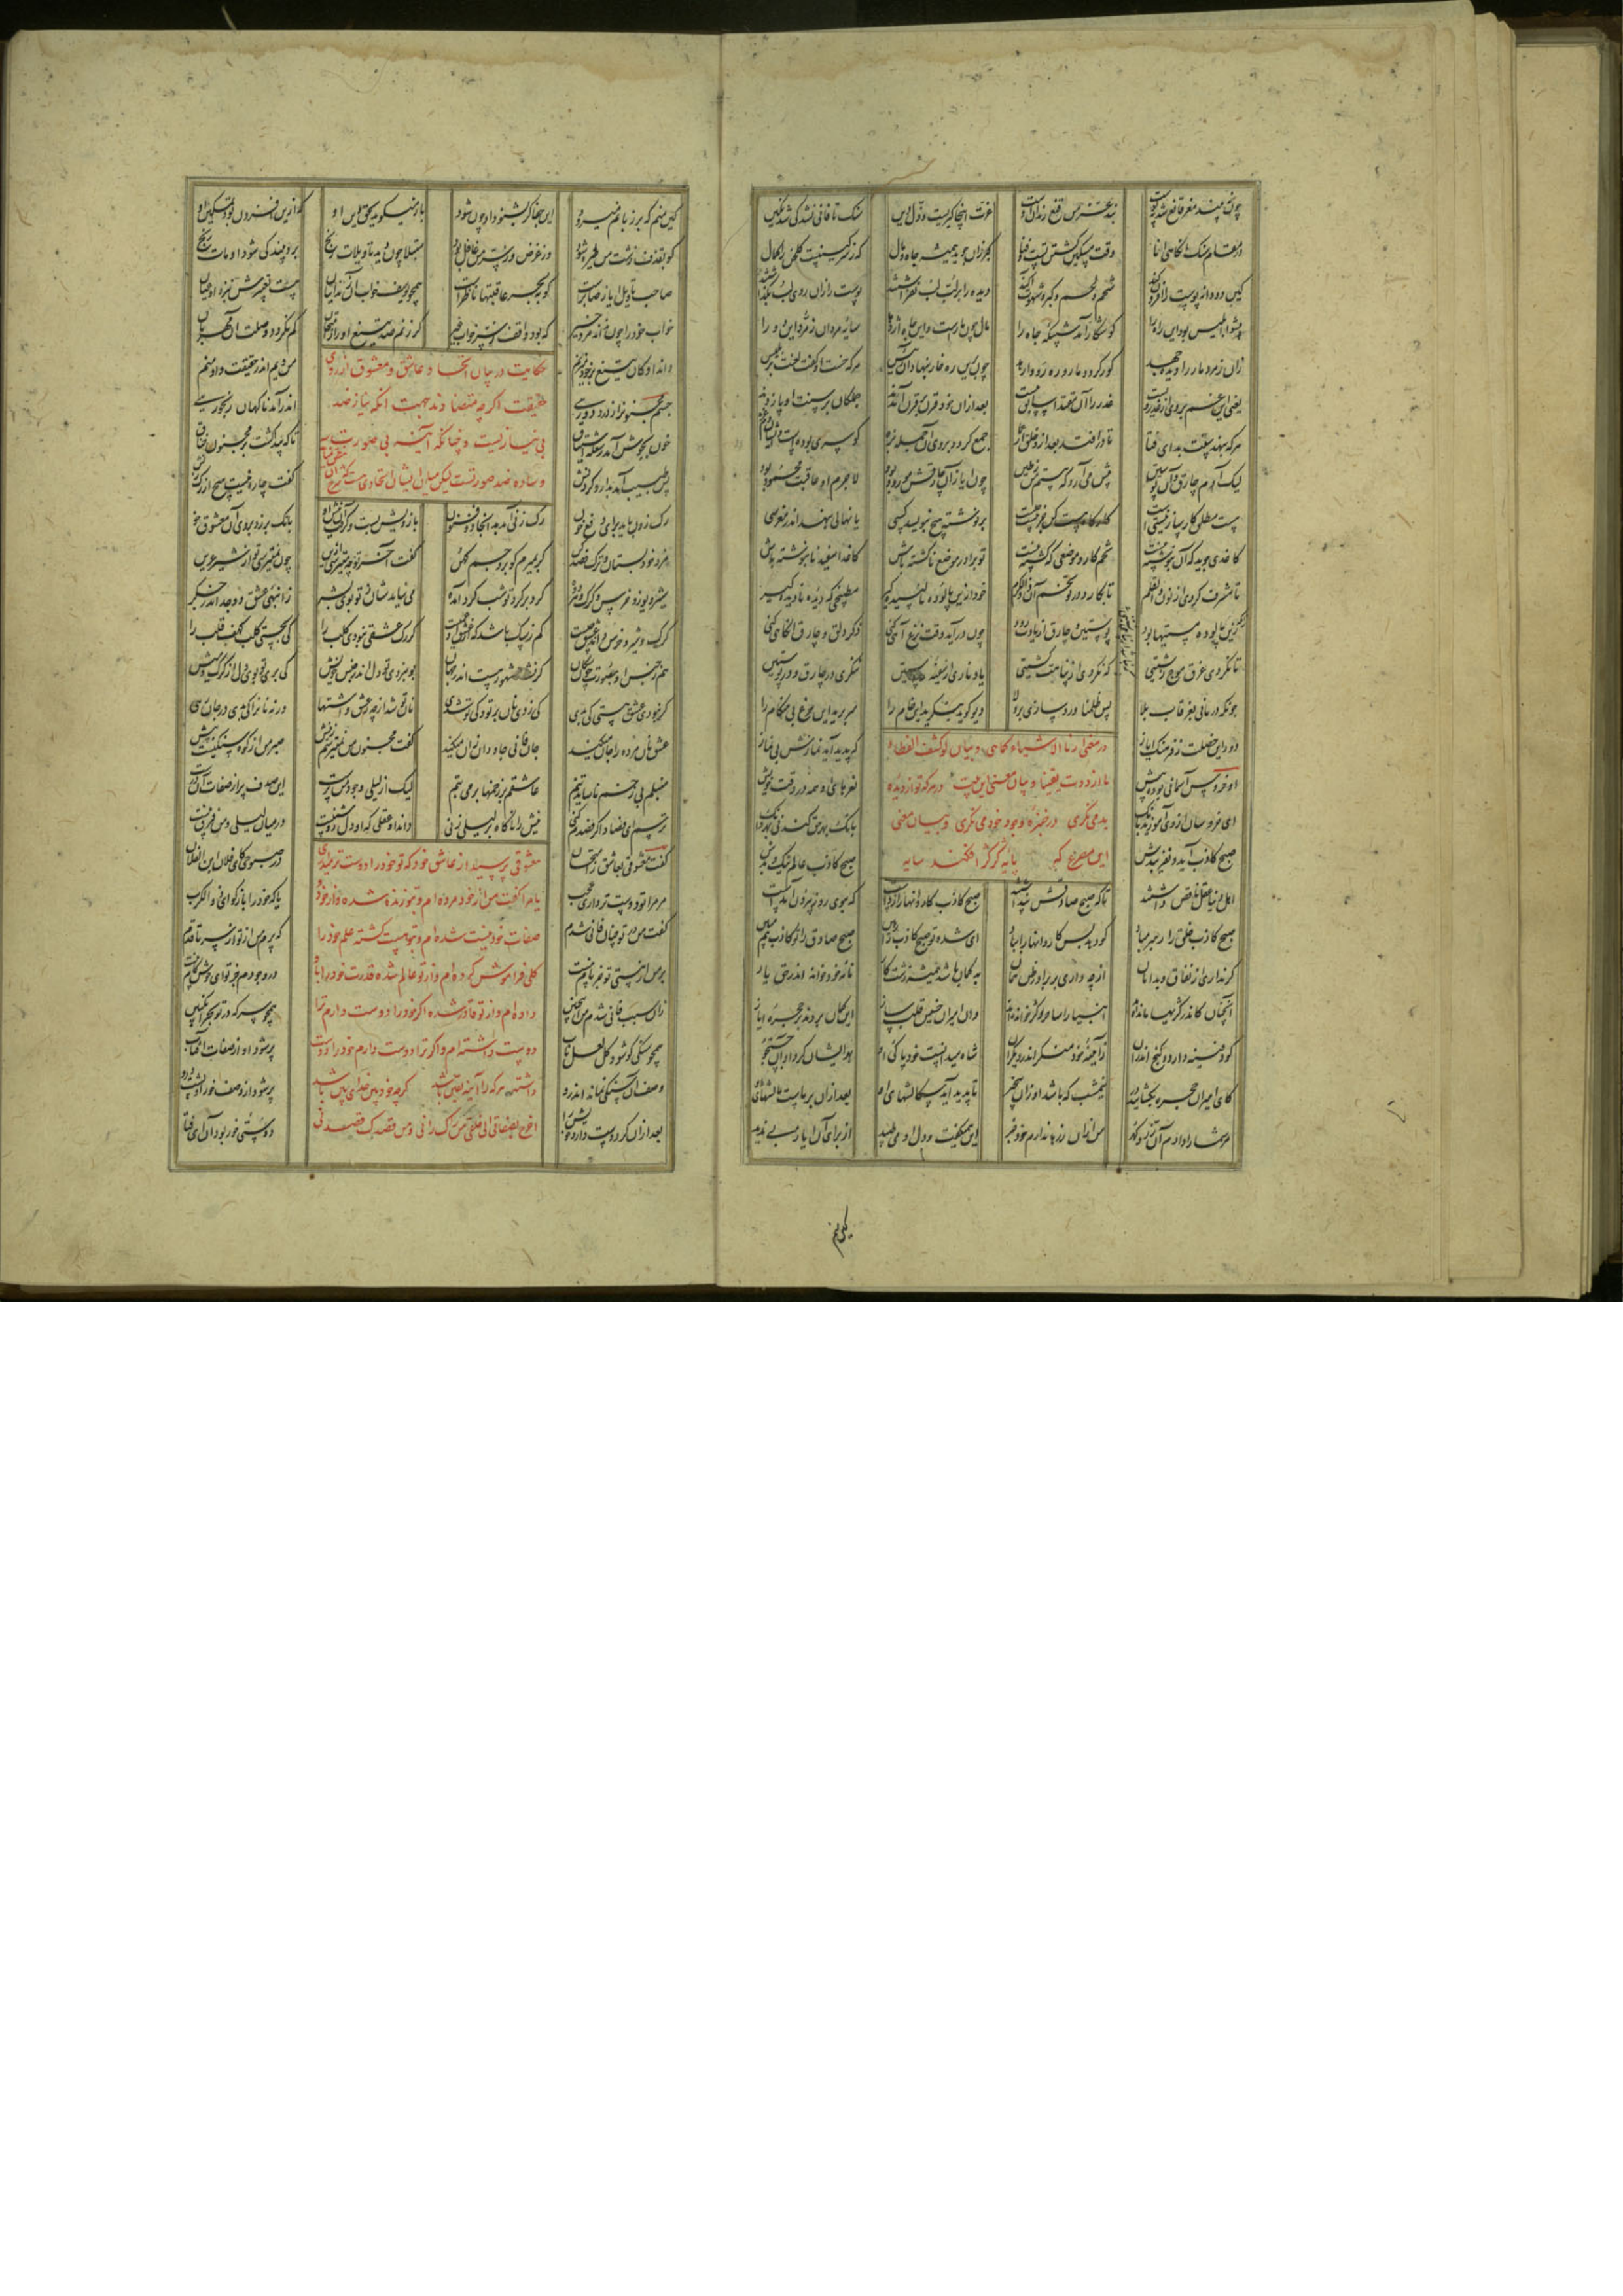 چون ببیند مغز قانع شد بپوست بند عز من قنع زندان اوست
عزت اینجا کبریست و ذل دین سنگ تا فانی نشد کی شد نگین
در مقام سنگ آنگاهی انا وقت مسکین گشتن تست و فنا
کبر زان جوید همیشه جاه و مال که ز سرگینست گلخن را کمال
کین دو دایه پوست را افزون کنند شحم و لحم و کبر و نخوت آکنند
دیده را بر لب لب نفراشتند پوست را زان روی لب پنداشتند
پیشوا ابلیس بود این راه را کو شکار آمد شبیکه جاه را
مال چون مارست و این جاه اژدها سایه مردان زمرد این دو را
زان زمرد مار را دیده جهد کور گردد مار و ره رو وارهد
چون برین ره خار بنهاد آن رئیس هر که خست او گفت لعنت بر بلیس
یعنی این غم بر من از غدر ویست غدر را آن مقتدا سابق پیست
بعد ازان خود قرن بر قرن آمدند جملگان بر سنت او پا زدند
هر که بنهد سنت بد ای فتا تا در افتد بعد او خلق از عما
جمع گردد بر وی آن جمله بزه کو سری بودست و ایشان دم غزه
لیک آدم چارق و آن پوستین پیش می آرد که هستم ز طین
چون ایاز آن چارقش مورود بود لاجرم او عاقبت محمود بود
هست مطلق کارساز نیستیست کارگاه هست کن جز نیست چیست
بر نوشته هیچ بنویسد کسی یا نهالی بنهد اندر مغرسی
کاغذی جوید که آن بنوشته نیست تخم کارد موضعی که کشته نیست
تو برادر موضع ناکشته باش کاغذ اسفید نابنوشته باش
تا مشرف گردی از نون والقلم تا بکارد در تو تخم آن ذوالکرم
خود ازین پالوده نالیسیده گیر مطبخی که دیده نادیده گیر
زانکه زین پالوده مستیها بود پوستین و چارق از یادت رود
چون در آید وقت نزع آهی کنی ذکر دلق و چارق آنگاهی کنی
تا نگردی غرق موج زشتیی که نگردی از پناهت کشتیی
یاد ناری از سفینه راستین ننگری در چارق و در پوستین
چونکه درمانی بغرقاب بلا پس ظلمنا ورد سازی بر ولا
دیو گوید بنگرید این خام را سر برید این مرغ بی هنگام را
دور این خصلت ز فرهنگ ایاز که پدید آید نمازش بی نماز
او خروس آسمانی بوده پیش نعرهای او همه در وقت خویش
در معنی ارنا الاشیاء کما هی و بیان لو کشف الغطاء
ما ازددت یقینا و بیان معنی این بیت در هر که تو از دیده
بد می نگری در چنبره وجود خود می نگری و بیان معنی
این مصرع که پایه کژ کژ افکند سایه
ای خروسان از وی آموزید بانگ بانگ بهر حق کند نی بهر دانگ
صبح کاذب آید و نفریبدش صبح کاذب عالم نیک و بدش
اهل دنیا عقل ناقص داشتند تا که صبح صادقش پنداشتند
صبح کاذب کاروانها را زدست که ببوی روز بیرون آمدست
صبح کاذب خلق را رهبر مباد کو دهد بس کاروانها را بباد
ای شده تو صبح کاذب را رهین صبح صادق را تو کاذب هم مبین
گر نداری از نفاق و بد امان از چه داری بر برادر ظن همان
بد گمان باشد همیشه زشت کار نامه خود خواند اندر حق یار
آن خسان کاندر کژیها مانده اند انبیا را ساحر و کژ خوانده اند
وان امیران خسیس قلب ساز این گمان بردند بر حجره ایاز
کو دفینه دارد و گنج اندران ز آینه خود منگر اندر دیگران
شاه میدانست خود پاکی او بهر ایشان کرد او آن جست و جو
کای امیر آن حجره بگشا نیمشب که باشد او زان بیخبر
تا پدید آید سگالشهای او بعد ازان بر ماست مالشهای او
مر شما را دادم آن زر و گهر من ازان زرها ندارم جز خبر
این همیگفت و دل او می طپید از برای آن ایاز بی ندید
که منم
کین منم که بر زبانم می رود این جفا گر بشنود او چون شود
باز میگوید بحق دین او که ازین افزون بود تمکین او
کو بقذف زشت من طیره شود وز غرض وز سر من غافل بود
مبتلا چون دید تاویلات رنج برد بیند کی شود او مات رنج
صاحب تاویل ایاز صابرست کو ببحر عاقبتها ناظرست
همچو یوسف خواب این زندانیان هست تعبیرش بنزد او عیان
خواب خود را چون نداند مرد خیر که بود واقف ز سر خواب غیر
گر زنم صد تیغ او را ز امتحان کم نگردد وصلت آن مهربان
داند او کان تیغ بر خود میزنم من ویم اندر حقیقت او منم
حکایت در بیان اتحاد عاشق و معشوق از روی
حقیقت اگر چه متضادند جهت آنکه نیاز ضد
بی نیازیست و چنانکه آینه بی صورتست
و ساده ضد صورتست لیکن میان ایشان اتحادیست
جسم مجنون را ز درد دوری اندر آمد ناگهان رنجوری
خون بجوش آمد ز شعله اشتیاق تا که پیدا گشت بر مجنون خناق
پس طبیب آمد بدارو کردنش گفت چاره نیست هیچ از رگ زنش
رگ زدن باید برای دفع خون رگ زنی آمد بدانجا ذو فنون
بازوش بست و گرفت آن نیش او بانگ بر زد بر وی آن معشوق خو
مزد خود بستان و ترک فصد کن گر بمیرم گو برو جسم کهن
گفت آخر تو چه میترسی ازین چون نمیترسی تو از شیر عرین
شیر و یوز و خرس و گرگ و دد گرد بر گرد تو شب گرد آمده
می نیاید شان ز تو بوی بشر ز انبهی عشق و وجد اندر جگر
گرگ و شیر و خرس داند عشق چیست کم ز سگ باشد که از عشق او عمیست
گر رگ عشقی نبودی کلب را کی بجستی کلب کهف قلب را
هم ز جنس او بصورت چون سگان گر نشد مشهور هست اندر جهان
بو نبردی تو دل اندر جنس خویش کی بری تو بوی دل از گرگ و میش
گر نبودی عشق هستی کی بدی کی زدی نان بر تو کی تو شدی
نان تو شد از چه ز عشق و اشتها ور نه نان را کی بدی در جان رهی
عشق نان مرده را جان میکند جان فانی جاودان میکند
گفت مجنون من نمی ترسم ز نیش صبر من از کوه سنگین هست بیش
منبلم بی زخم ناساید تنم عاشقم بر زخمها بر می تنم
لیک از لیلی وجود من پرست این صدف پر از صفات آن درست
ترسم ای فصاد اگر فصدم کنی نیش را ناگاه بر لیلی زنی
داند او عقلی که او دل روشنیست در میان لیلی و من فرق نیست
معشوقی پرسید از عاشق خود که تو خود را دوست تر داری
یا مرا گفت من از خود مرده ام و بتو زنده شده و از خود و
صفات خود نیست شده ام و بتو هست گشته علم خود را
کلی فراموش کرده ام و از تو عالم شده قدرت خود بباد
داده ام و از تو قادر شده اگر خود را دوست دارم ترا
دوست داشته ام و اگر ترا دوست دارم خود را دوست
داشته هر که را آینه یقین باشد گرچه خود بین خدای بین باشد
اخرج بصفاتی الی خلقی من رآک رآنی و من قصدک قصدنی
گفت معشوقی بعاشق ز امتحان در صبوحی کای فلان ابن الفلان
مر مرا تو دوست تر داری عجب یا که خود را باز گو ای ذا الکرب
گفت من در تو چنان فانی شدم که پرم من از تو از سر تا قدم
بر من از هستی تو جز نام نیست در وجودم جز تو ای خوش کام نیست
زان سبب فانی شدم من این چنین همچو سرکه در تو بحر انگبین
همچو سنگی کو شود کل لعل ناب پر شود او از صفات آفتاب
وصف آن سنگی نماند اندرو پر شود از وصف خور او پشت و رو
بعد ازان گر دوست دارد خویش را دوستی خور بود آن ای فتا